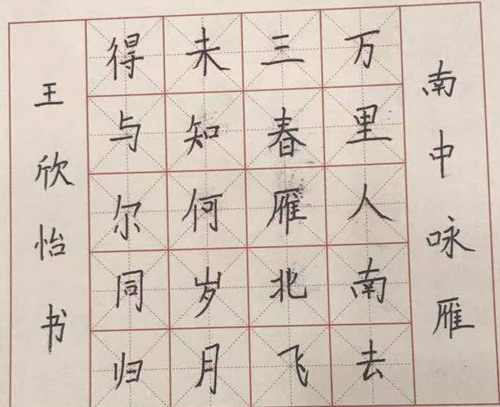 南中咏雁
万里人南去
三春雁北飞
未知何岁月
得与尔同归
王欣怡书